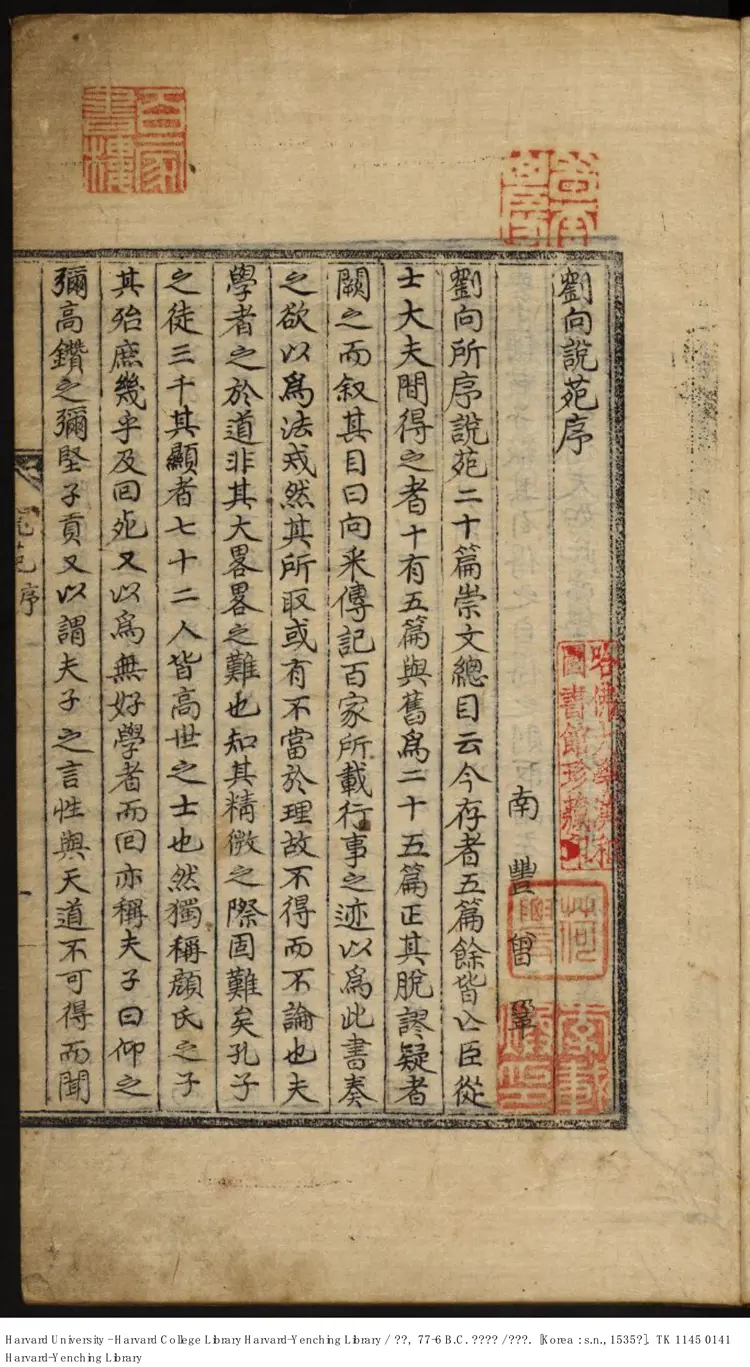 劉向說苑序
南豐曾鞏
劉向所序說苑二十篇崇文總目云今存者五篇餘皆亾臣從
士大夫間得之者十有五篇與舊爲二十五篇正其脫謬疑者
闕之而叙其目曰向采傳記百家所載行事之迹以爲此書奏
之欲以爲法戒然其所取或有不當於理故不得而不論也夫
學者之於道非其大畧畧之難也知其精微之際固難矣孔子
之徒三千其顯者七十二人皆高世之士也然獨稱顔氏之子
其殆庶幾乎及回死又以爲無好學者而回亦稱夫子曰仰之
彌高鑽之彌堅子貢又以謂夫子之言性與天道不可得而聞
苑序
百家
書樓
哈佛大學漢和
圖書館珍藏印
Harvard University - Harvard College Library Harvard-Yenching Library / ??, 77-6 B.C. ???? /???. [Korea : s.n., 1535?]. TK 1145 0141
Harvard-Yenching Library